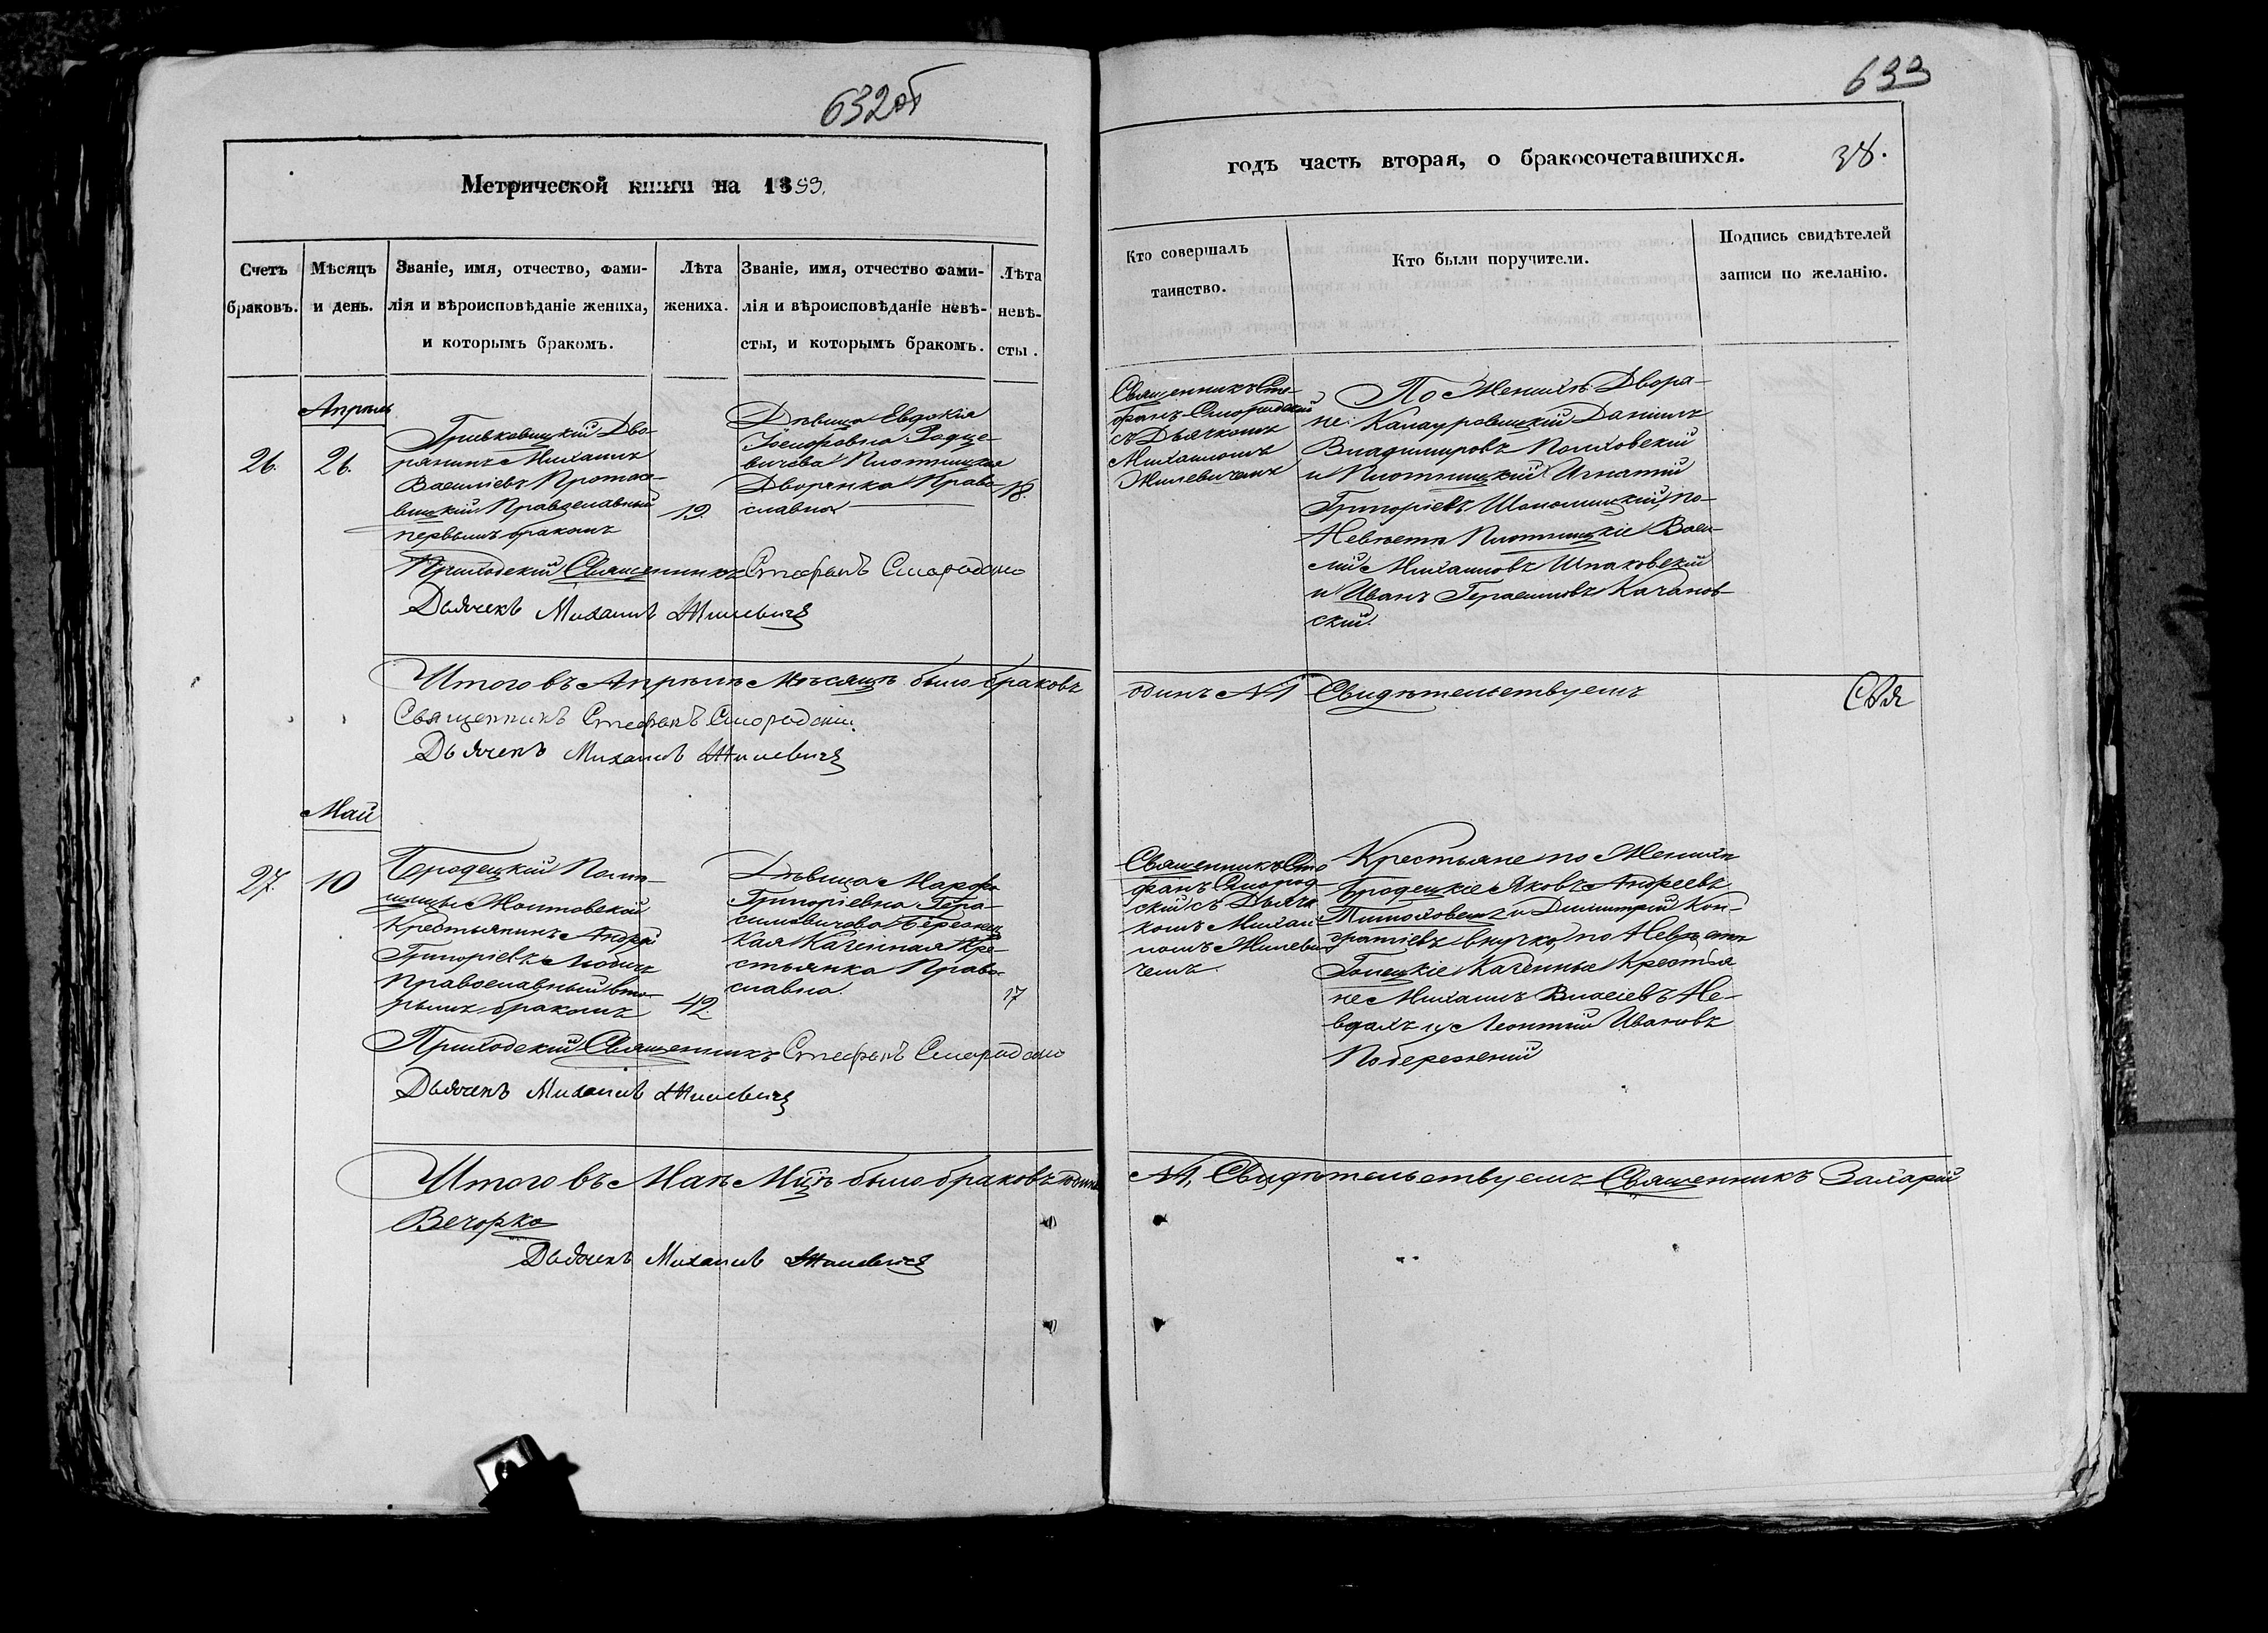 632об
Метрической книги на 1853.
Счетъ браковъ.
Мѣсяцъ и день.
Званіе, имя, отчество, фами-
лія и вѣроисповѣданіе жениха,
и которымъ бракомъ.
Лѣта жениха.
Званіе, имя, отчество фами-
лія и вѣроисповѣданіе невѣ-
сты, и которымъ бракомъ.
Лѣта невѣ-
сты.
Апрѣль
26.
26.
Гривковицкій Дво-
рянинъ Михаилъ
Васильевъ Протасо-
вицкій Православный
первымъ бракомъ
19.
Дѣвица Евдокія
Плотницкая
Дворянка Право-
славная
18.
Приходскій Священникъ Стефанъ Смородскій
Дьячекъ Михаилъ Жилевичъ
Итого въ Апрѣлѣ Мѣсяцѣ было браковъ
Священникъ Стефанъ Смородскій.
Дьячекъ Михаилъ Жилевичъ
Май
27.
10
Городецкій
Крестьянинъ Андрей
Григорьевъ
Православный вто-
рымъ бракомъ
42.
Дѣвица Марфа
Григоріевна Гера-
симовичова
Казенная Кре-
стьянка Право-
славна.
17
Приходскій Священникъ Стефанъ Смородскій
Дьячекъ Михаилъ Жилевичъ
Итого въ Маѣ Мцѣ было браковъ одинъ
Вечорко
Дьячекъ Михаилъ Жилевичъ
633
годъ часть вторая, о бракосочетавшихся.
38.
Кто совершалъ
таинство.
Кто были поручители.
Подпись свидѣтелей
записи по желанію.
Священникъ Сте-
фанъ Смородскій
съ Дьячкомъ
Михаиломъ
Жилевичемъ
По Женихѣ Дворя-
не: Калауровицкій Даніилъ
Владимировъ Полховскій
и Плотницкій Игнатій
Григоріевъ по
Невѣстѣ Плотницкіе Васи-
лій Михаиловъ Шпаковскій
и Иванъ Герасимовъ Качанов-
скій.
одинъ №1 Свидѣтельствуемъ
Свя
Священникъ Сте
фанъ Смород-
скій съ Дьяч
комъ Михаи
ломъ Жилеви
чемъ.
Крестьяне по Женихѣ
Городецкіе Яковъ Андреевъ
и Димитрій Кон-
дратіевъ Внучко, по Невѣстѣ
Казенные Крестья
не Михаилъ Власіевъ Не-
вдахъ и Леонтій Ивановъ
Побережный
№1, Свидѣтельствуемъ Священникъ Захарій